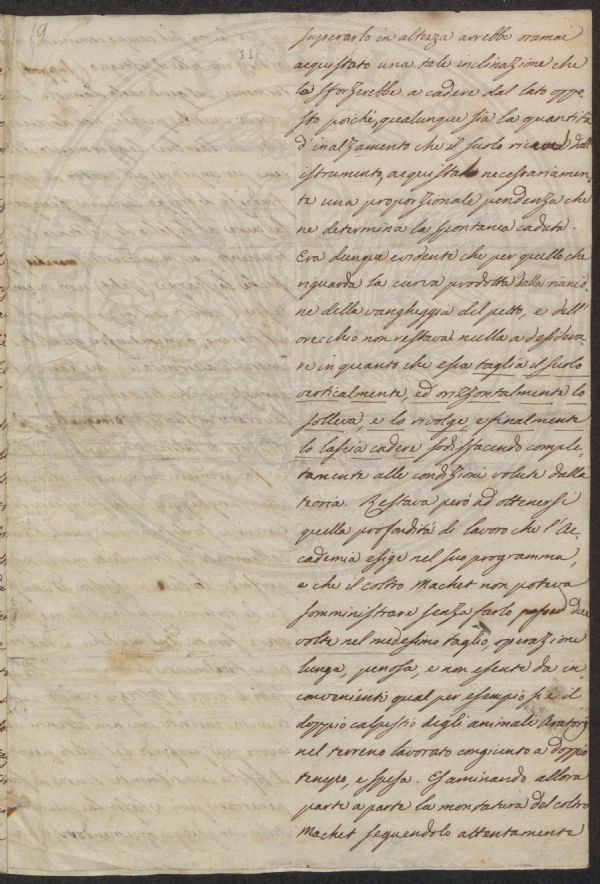 19.
superarlo in altezza avrebbe oramai
acquistato una tale inclinazione che
lo sforzerebbe a cadere dal lato oppo-
sto poiché, qualunque sia la quantità
d'inalzamento che il suolo riceve dall'
istrumento, acquista necessariamen-
te una proporzionale pendenza che
ne determina la spontanea caduta.
Era dunque evidente che per quello che
riguarda la curva prodotta dalla riunio-
ne della vangheggia del petto, e dell'
orecchio non restava nulla a desidera-
re in quanto che essa taglia il suolo
verticalmente, ed orizzontalmente lo
solleva, e lo rivolge, e finalmente
lo lascia cadere sodisfacendo comple-
tamente alle condizioni volute dalla
teoria. Restava però ad ottenersi
quella profondità di lavoro che l'Ac-
cademia esige nel suo programma,
e che il coltro Machet non poteva
somministrare senza farlo due
volte nel medesimo taglio, operazione
lunga, penosa, e non esente da in-
convenienti qual per esempio si è il
doppio calpestio degli animali Aratorj
nel terreno lavorato congiunto a doppio
tempo, e spesa. Esaminando allora
parte a parte la montatura del coltro
Machet seguendolo attentamente